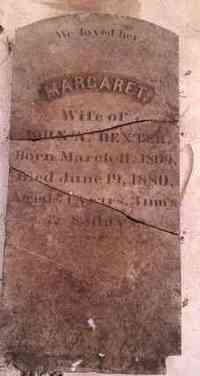 We loved her
MARGARET,
Wife of
JOHN A. DEXTER,
Born March 11, 1809,
Died June 19, 1880,
Aged 71 Years, 3 mos
& 8 days